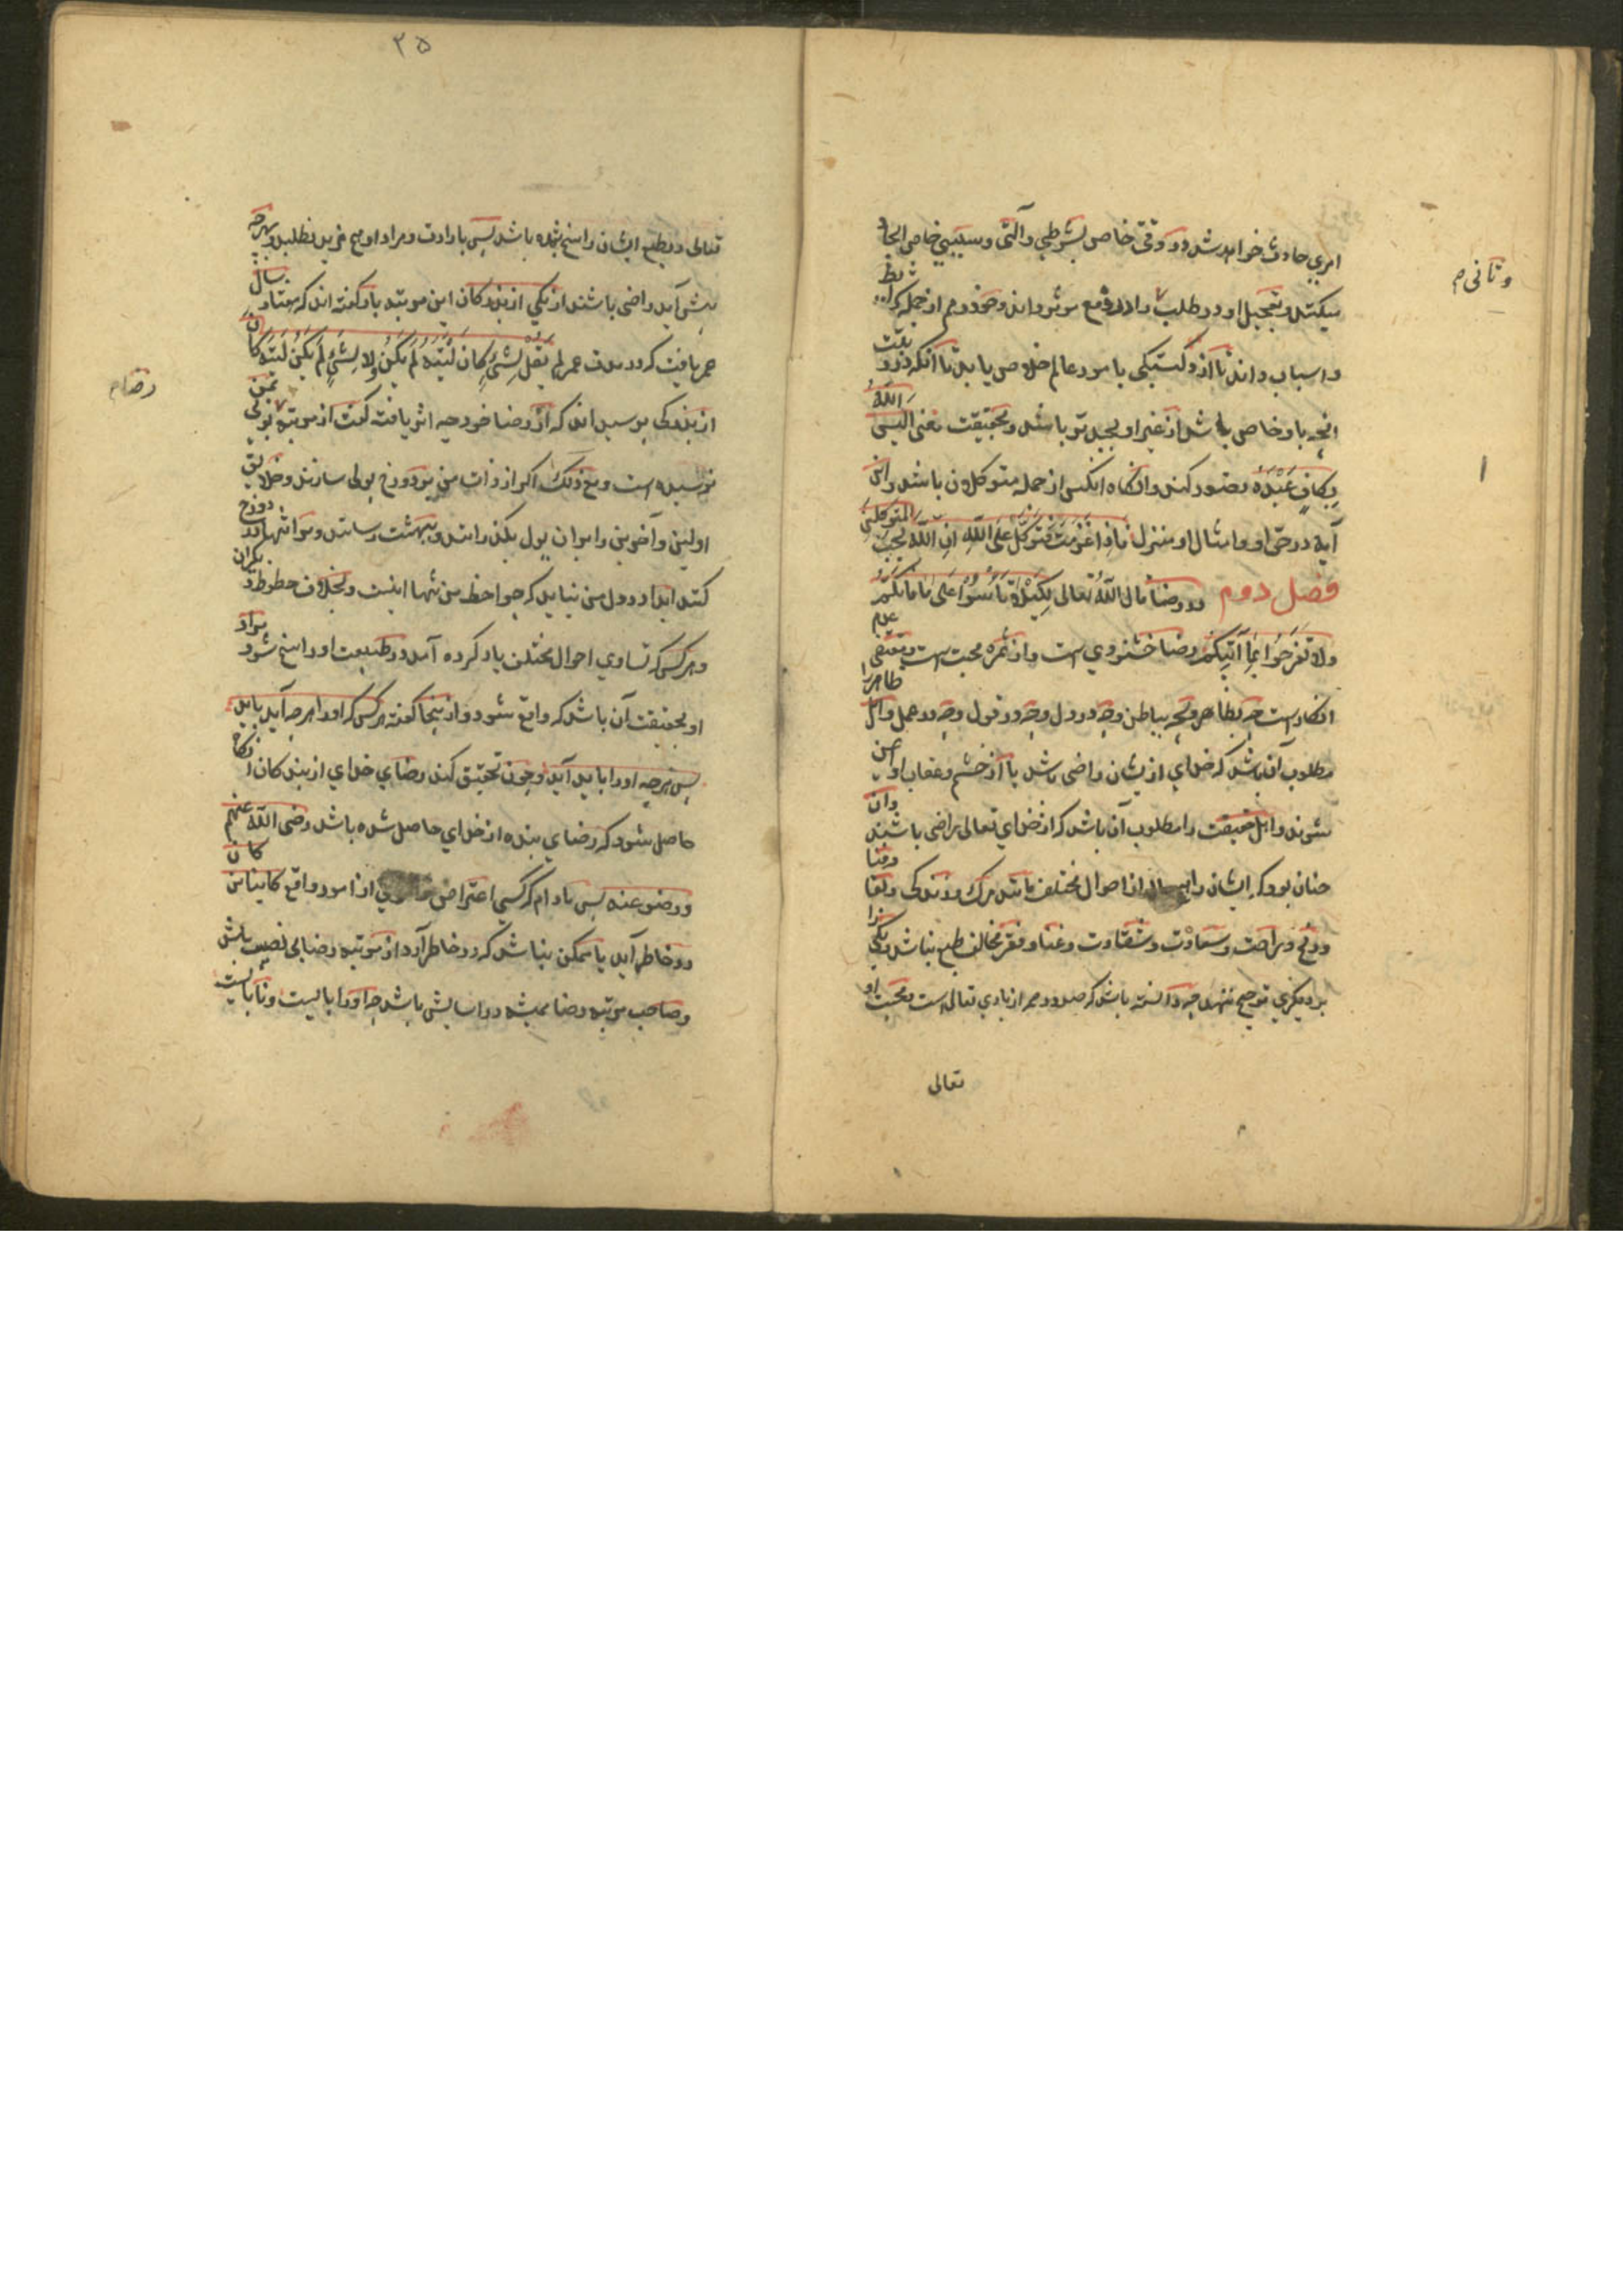 امری حادث خواهد شد در وقتی خاص بشرطی و آلتی و سببی خاص ایجاد
میکند و تعجیل او در طلب و ادر دفع موثر نداند و خود را هم از جمله شرایط
و اسباب داند تا از دلبستگی بامور عالم خلاص یابد تا آنکه در ترتیب
انچه باو خاص باشد از غیر او بجد تر باشد و بحقیقت معنی الیس الله
بکاف عبده تصور کند و انگاه انکس از جمله متوکلون باشد و این
آیه در حق او و امثال او منزل فاذا عزمت فتوکل علی الله ان الله یحب المتوکلین
فصل دوم در رضا قال الله تعالی لکیلا تاسوا علی ما فاتکم
ولا تفرحوا بما آتیکم رضا خشنودی است و از ثمره محبت است و مقتضی عدم
انکارست چه بظاهر و چه بباطن و چه در دل و چه در قول و چه در عمل و اهل ظاهر را
مطلوب آن باشد که خدای ازیشان راضی باشد تا از خشم و عقاب او ایمن
شوند و اهل حقیقت را مطلوب آن باشد که از خدای تعالی راضی باشند و آن
چنان بود که ایشان را هیچ حال از احوال مختلف مانند مرگ و زندگی و بقا و فنا
و رنج و راحت و سعادت و شقاوت و غنا و فقر مخالف طبع نباشد و یکی را
بر دیگری ترجیح ننهند چه دانسته باشد که صدور همه از باری تعالی است و محبت او
تعالی
وثانی م
۱
۲۵
تعالی در طبع ایشان راسخ شده باشد پس بارادت و مراد او هیچ مزید نطلبد و بهرچه
پیش آید راضی باشند از یکی از بزرگان این مرتبه باز گفته اند که هفتاد سال
عمر یافت که در مدت عمر لم یقل لشئ کان لیته لم یکن ولا لشئ لم یکن لیته کان
از بزرگی پرسیدند که از رضا خود چه اثر یافته گفت از مرتبه رضا بوئی بمن
نرسیده است و مع ذلک اگر از ذات من بر دوزخ پولی سازند و خلایق
اولین و آخرین را بر ان پول بگذرانند و ببهشت رسانند و مرا تنها در دوزخ
کنند ابدا در دل من نیاید که چرا حظ من تنها اینست و بخلاف حظوظ دیگران
و هر کس که تساوی احوال مختلف یاد کرده آمد در طبیعت او راسخ شود مراد
او بحقیقت آن باشد که واقع شود و از ینجا گفته هر کس که او را هرچه آید باید
پس هرچه او را باید آید و چون تحقیق کند رضای خدای از بنده گان انگاه
حاصل شود که رضای بنده از خدای حاصل شده باشد رضی الله عنهم
و رضوا عنه پس مادام که کسی اعتراض بر امری از امور واقع کائنا من کان
در خاطر آید یا ممکن بنا شد که در خاطر آرد از مرتبه رضا بی نصیب باشد
و صاحب مرتبه رضا همیشه در اسایش باشد چه او را بایست و نابایست
رضا م